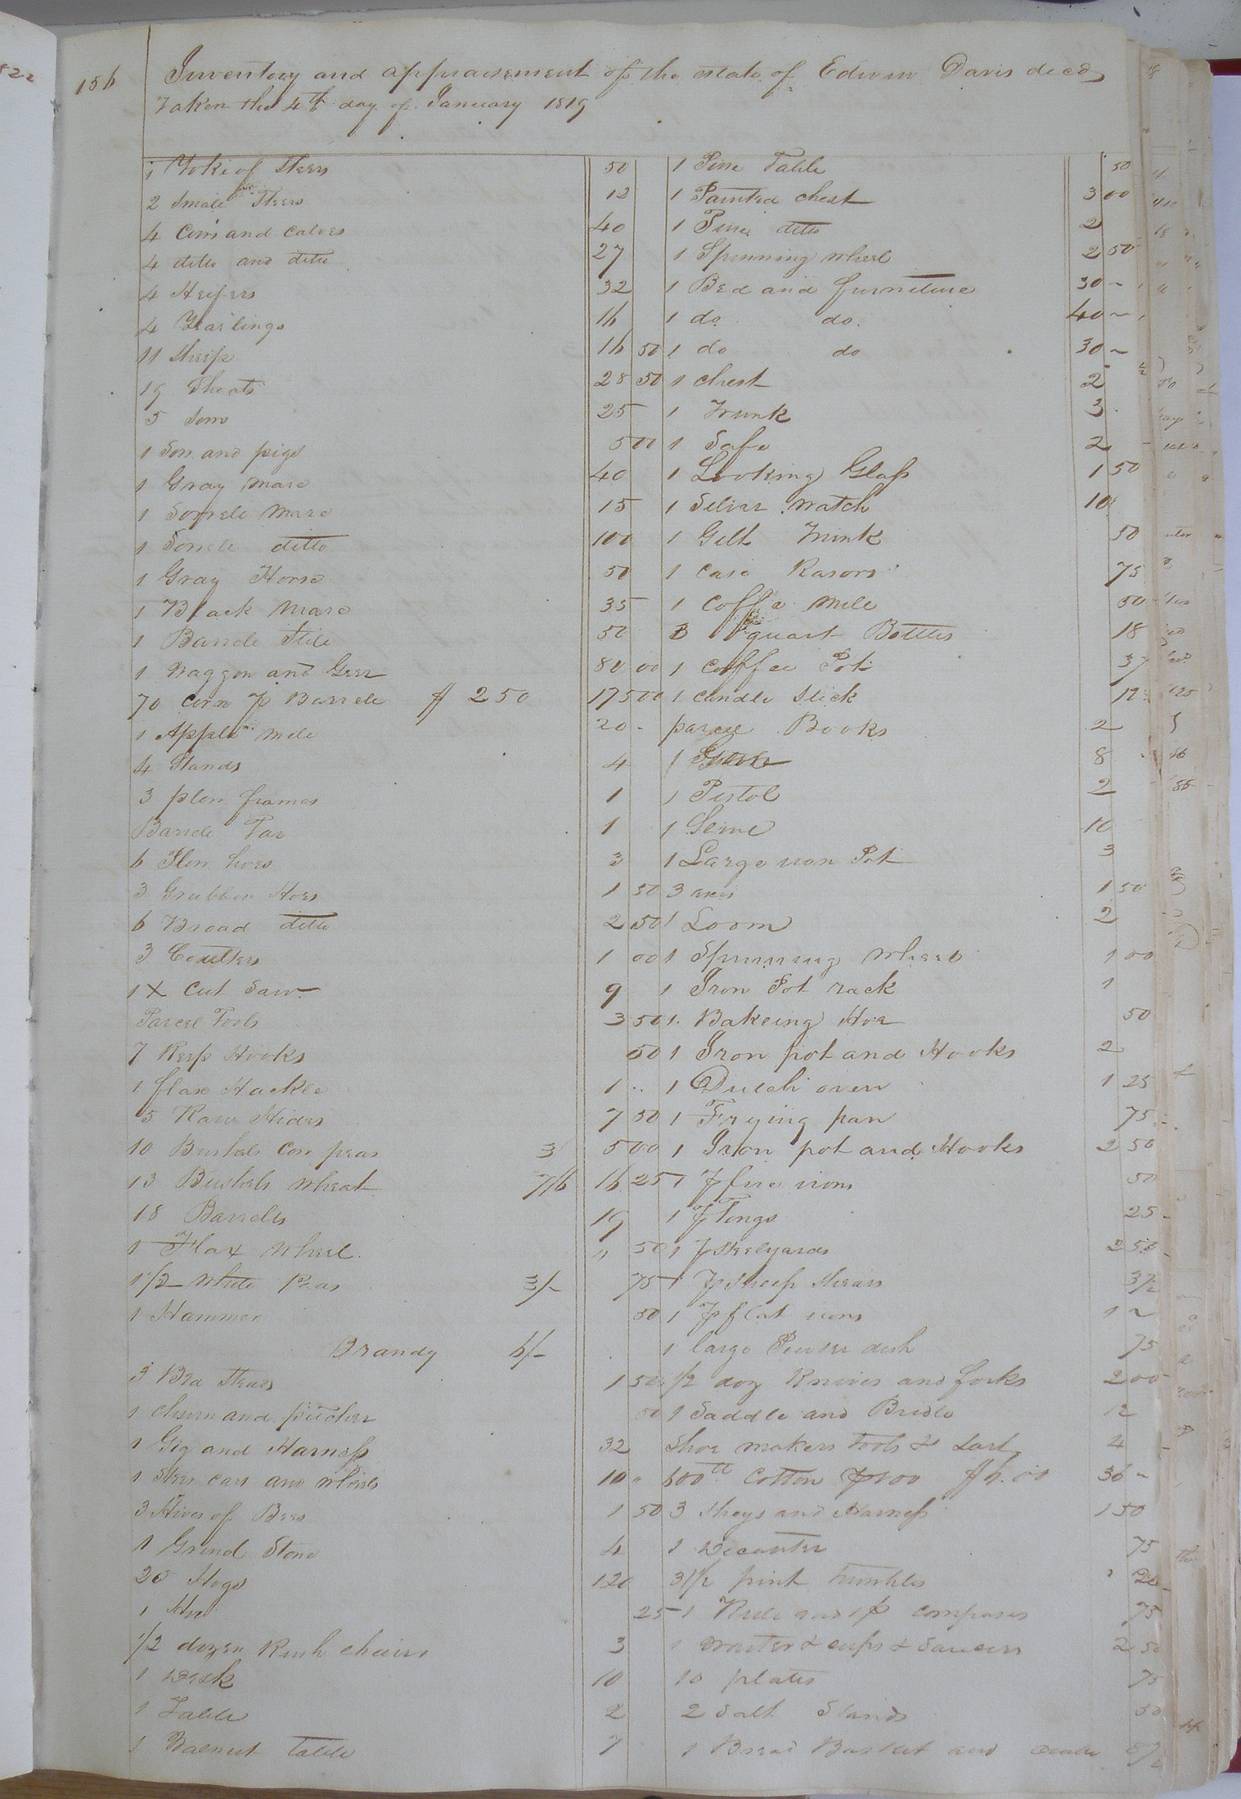 156
Inventory and appraisement of the estate of Edwin Davis decd
Taken the 4th day of January 1819
1 Yoke of Steers 50
2 Small Steers 12
4 Cows and calves 40
4 ditto and ditto 27
4 Heifers 32
4 Yearlings 16
11 Sheep 16 50
19 Shoats 28 50
5 Sows 25
1 Sow and pigs 5 00
1 Gray mare 40
1 Sorrele mare 15
1 Sorrele ditto 100
1 Gray Horse 50
1 Black mare 35
1 Barrele Still 50
1 Waggon and Geer 80 00
70 Corn p Barrele $ 2 50 175 00
1 Apple mill 20
4 Stands 4
3 plow frames 1
Barrele Tar 1
6 Plow hoes 3
3 Grubbon Hoes 1 50
6 Broad ditto 2 50
3 Coulters 1 00
1 X Cut Saw 9
Parcel Tools 3 50
7 Reap Hooks 50
1 flax Hackle 1
5 Raw Hides 7 50
10 Bushels Corn peas 3/ 5 00
13 Bushels wheat 7/6 16 25
18 Barrels 19
1 Flax wheel 50
1 1/2 white Peas 3/- 75
1 Hammer 50
Brandy 6/-
3 Bed Steads 1 50
1 churn and pitcher 50
1 Gig and Harness 32
1 Steer cart and wheels 10
3 Hives of Bees 1 50
1 Grind Stone 4
20 Hogs 120
1 25
1/2 dozen Rush chairs 3
1 desk 10
1 Table 2
1 Walnut table 7
1 Pine Table 50
1 Painted chest 3 00
1 Pine ditto 2
1 Spinning wheel 2 50
1 Bed and furniture 30
1 do do 40
1 do do 30
1 chest 2
1 Trunk 3
1 Safe 2
1 Looking Glass 1 50
1 Silver watch 10
1 Gilt Trunk 50
1 case Rasors 75
1 coffe mile 50
3 quart Bottles 18
1 coffee Pot 37
1 candle stick 12
parcel Books 2
1 8
1 Pistol 2
1 Seine 10
1 Large iron Pot 3
3 axes 1 50
1 Loom 2
1 Spinning wheel 1 00
1 Iron Pot rack 1
1 Bakeing Hoe 50
1 Iron pot and Hooks 2
1 Dutch oven 1 25
1 Frying pan 75
1 Iron pot and Hooks 2 50
1 p fire irons 50
1 p Tongs 25
1 p Steelyards 2 50
1 p sheep Shears 37 1/2
1 p flat irons 1
1 large Pewter dish 75
1/2 doz Knives and forks 2 00
1 Saddle and Bridle 12
Shoe makers tools & Last 4
600 lb Cotton p 100 $6.00 36
3 Sleys and Harness 1 50
1 Decanter 75
3 1/2 pint tumbles
1 Rule and p compases 75
1 waiter & cups & Saucers 2 50
10 plates 75
2 Salt Stands 50
1 Bread Basket and